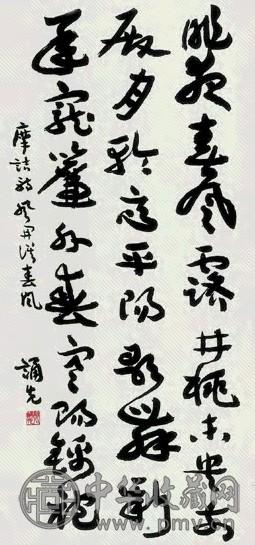 昨夜春風露井桃未央前
殿月輪高平陽歌舞新
承寵簾外春寒賜錦袍
摩詰詩風開誤春風
誦先
中华收藏网
www.pmv.cn